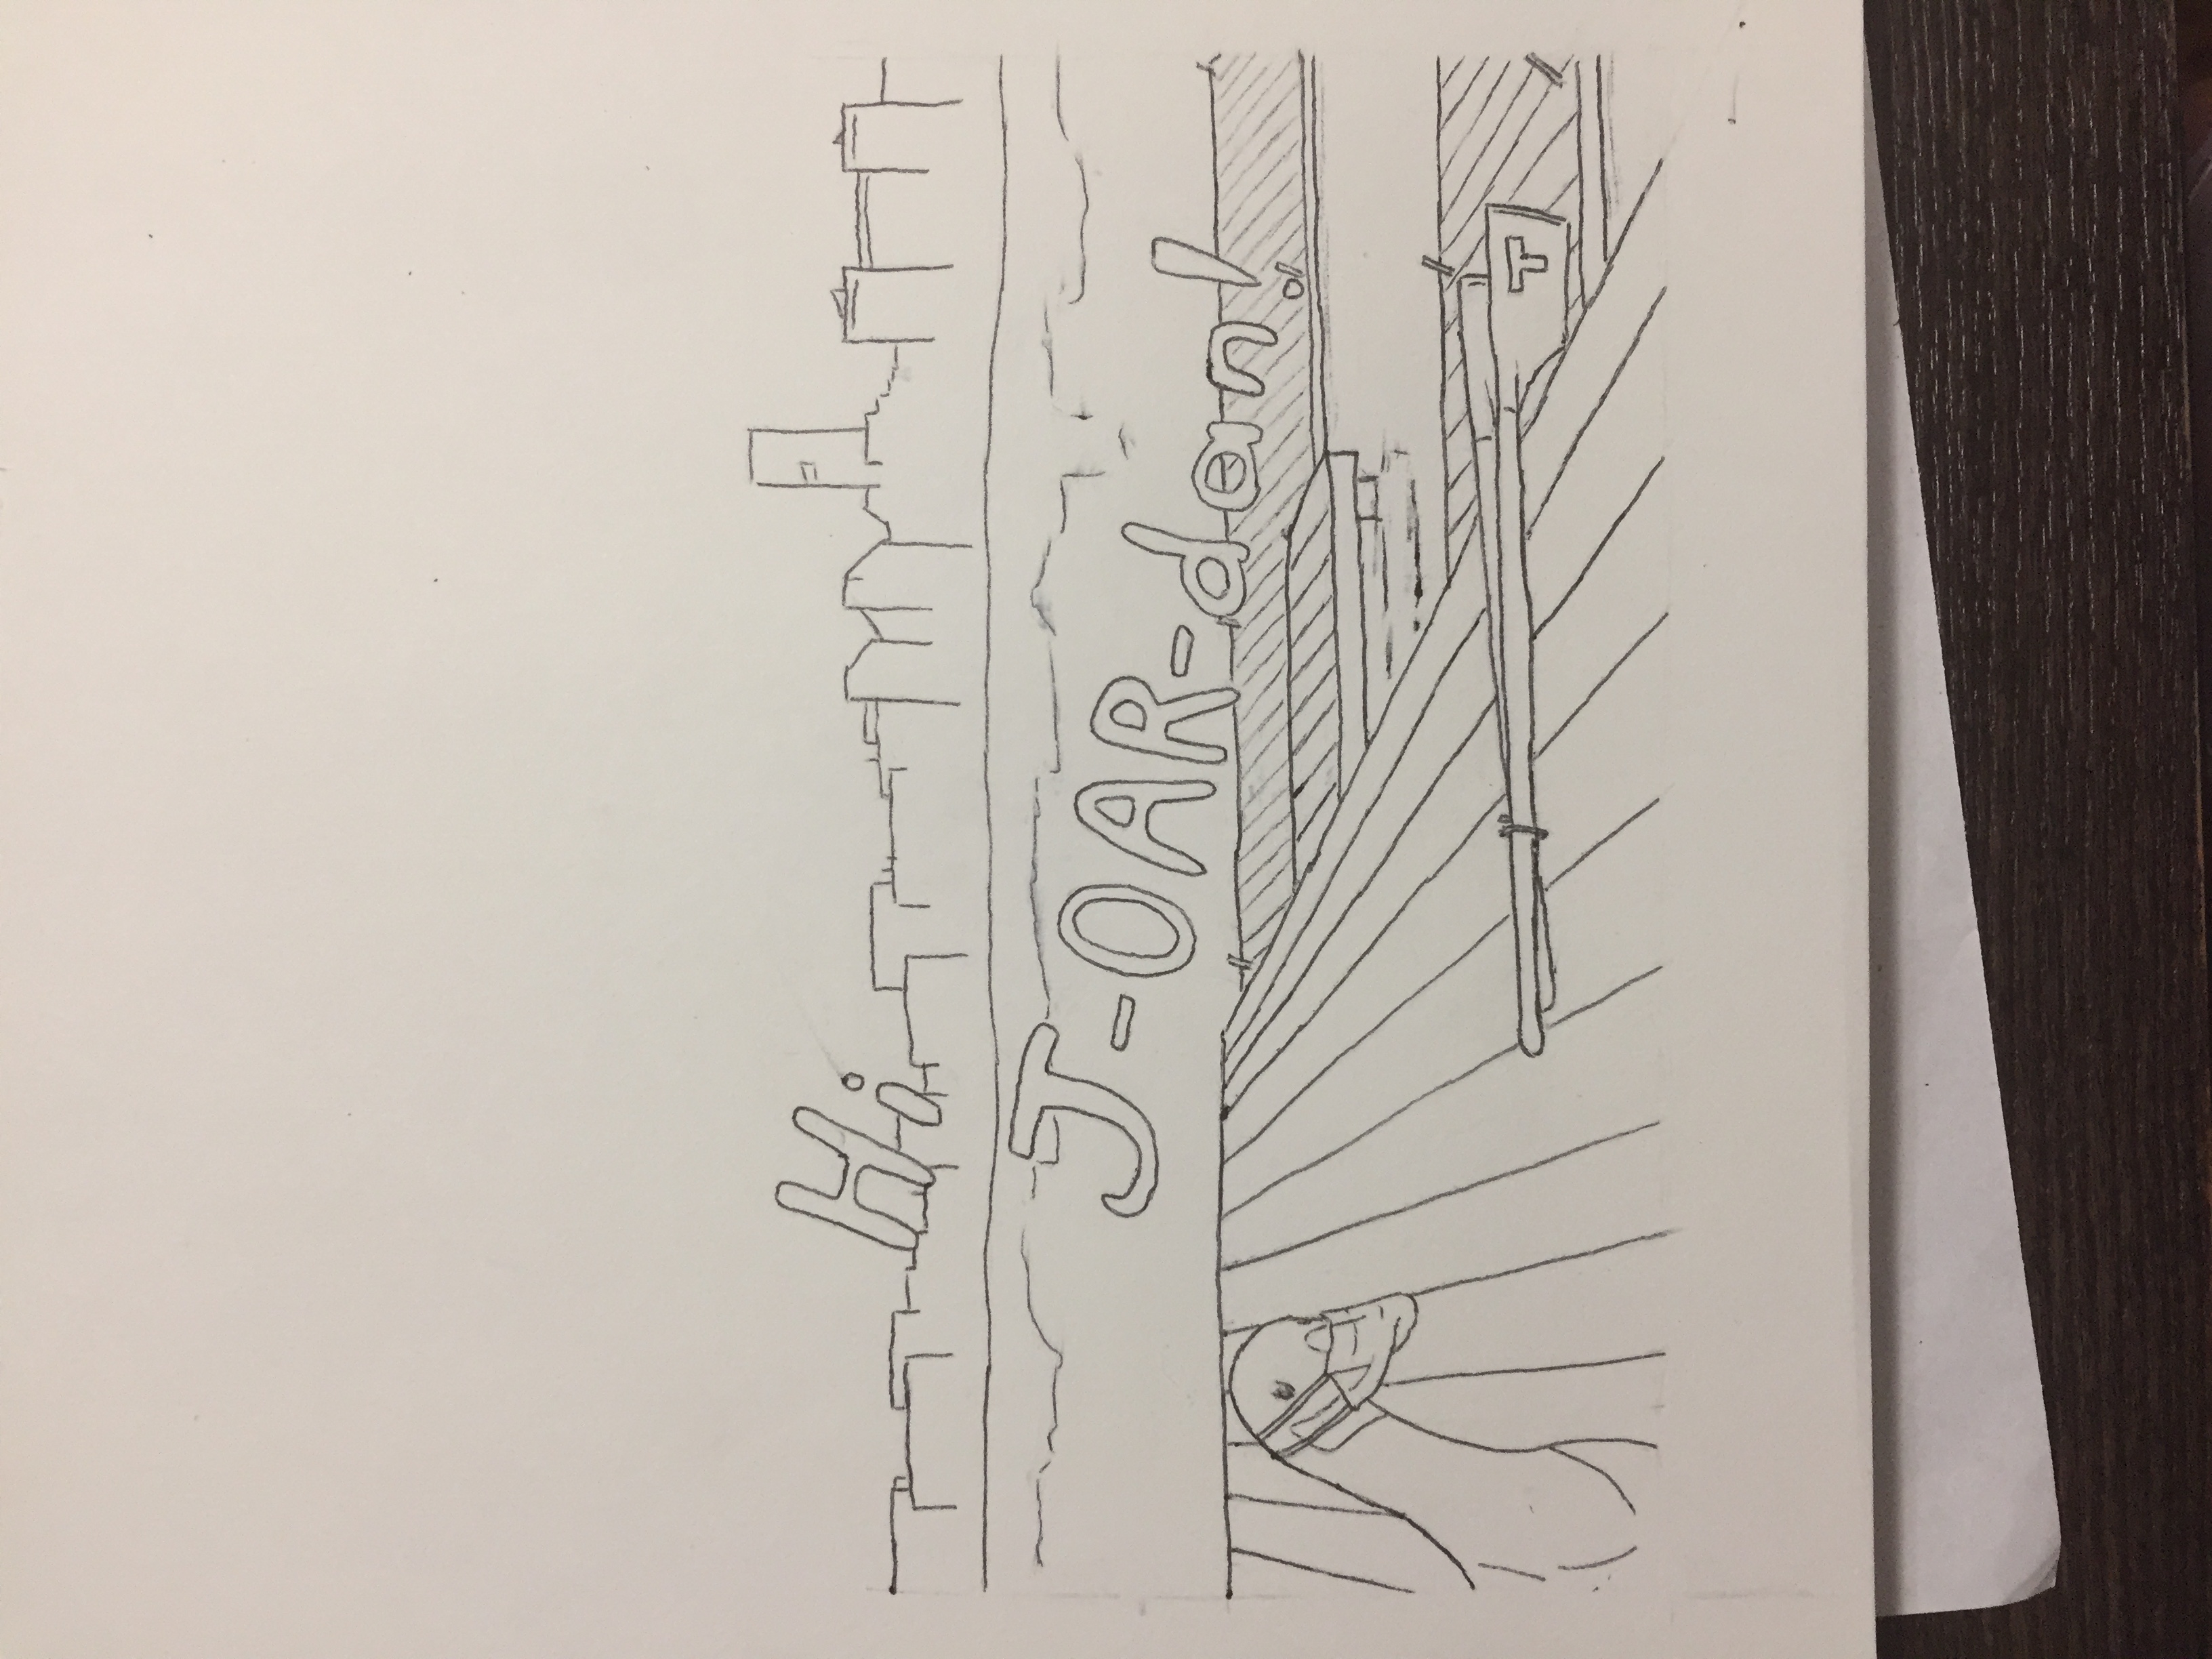 Hi
J-OAR-dan!
T